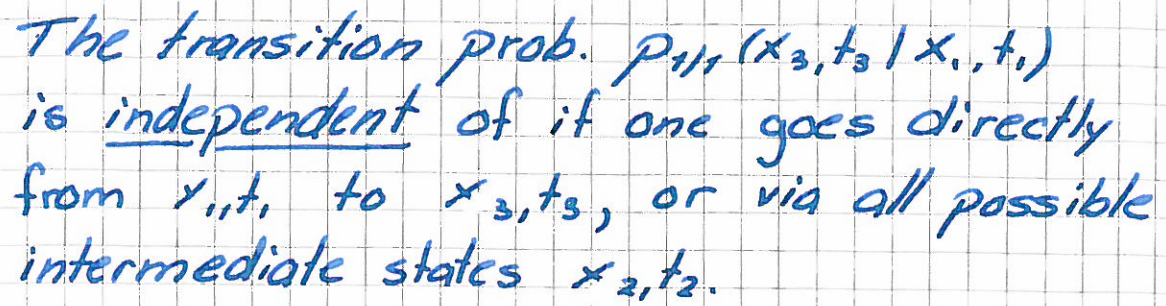 The transition prob. p₁|₁(x₃,t₃|x₁,t₁)
is independent of if one goes directly
from x₁,t₁ to x₃,t₃, or via all possible
intermediate states x₂,t₂.